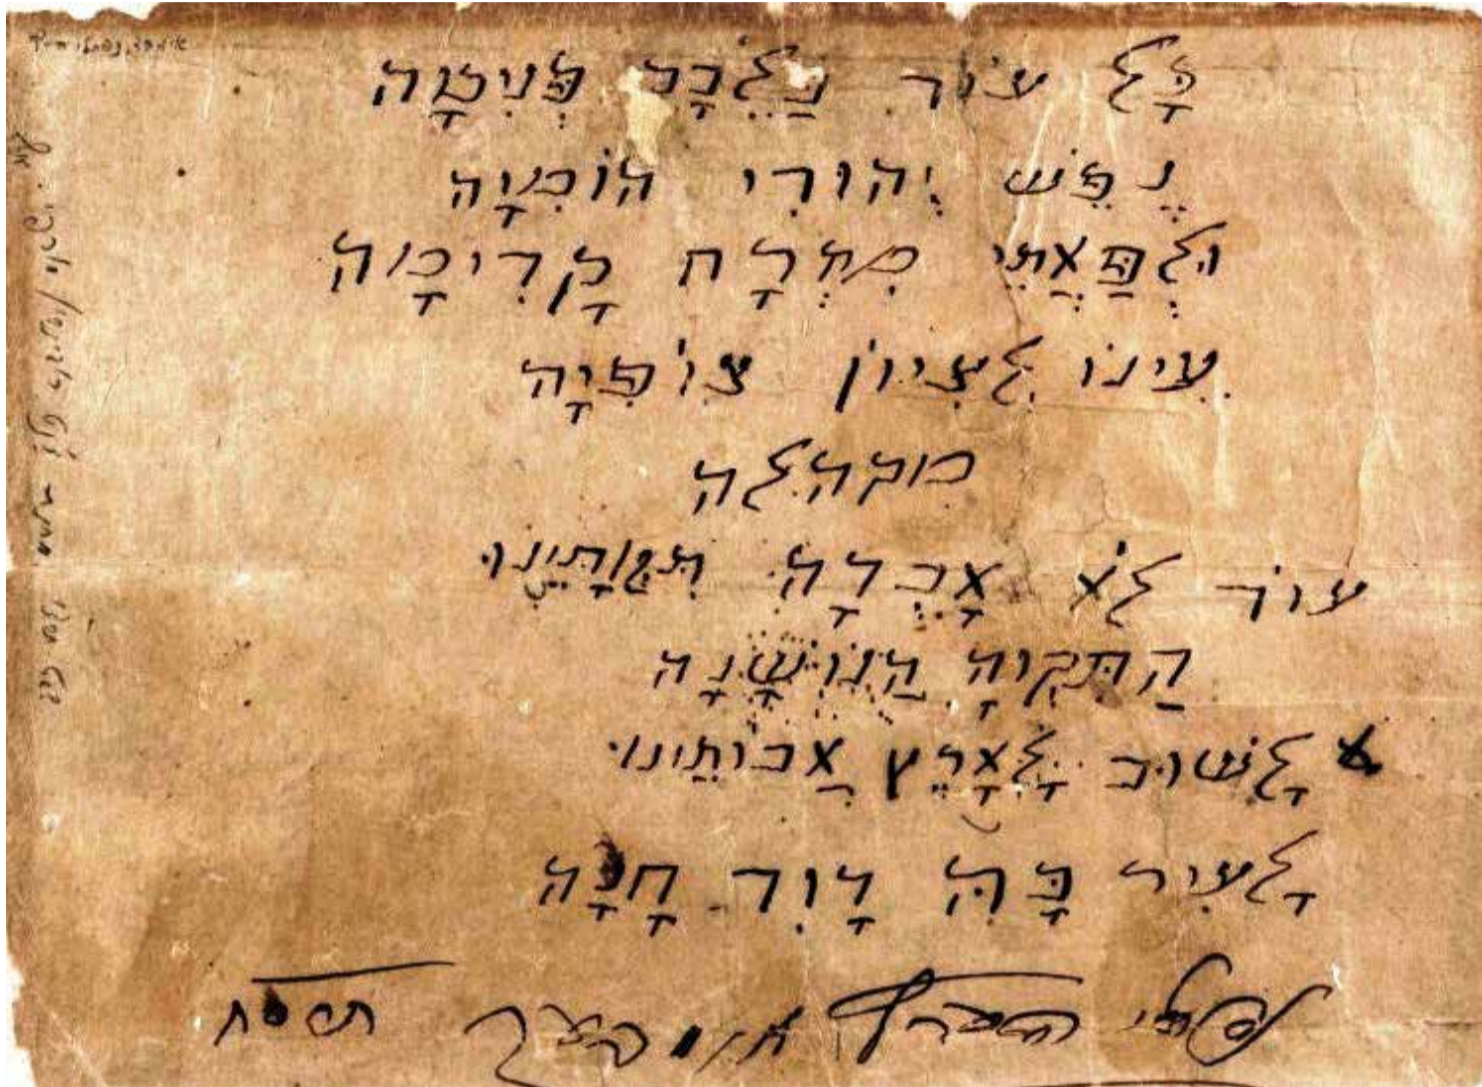 אימבר, נפתלי הרץ
כָּל עוֹד בַּלֵּבָב פְּנִימָה
נֶפֶשׁ יְהוּדִי הוֹמִיָּה
וּלְפַאֲתֵי מִזְרָח קָדִימָה
עֵינוֹ לְצִיוֹן צוֹפִיָּה
מקהלה
עוֹד לֹא אָבְדָה תִּקְוָתֵינוּ
הַתִּקְוָה הַנוֹשָׁנָה
לָשׁוּב לְאָרֶץ אֲבוֹתֵינוּ
לָעִיר בָּהּ דָוִד חָנָה
נפתלי הערץ אימבער